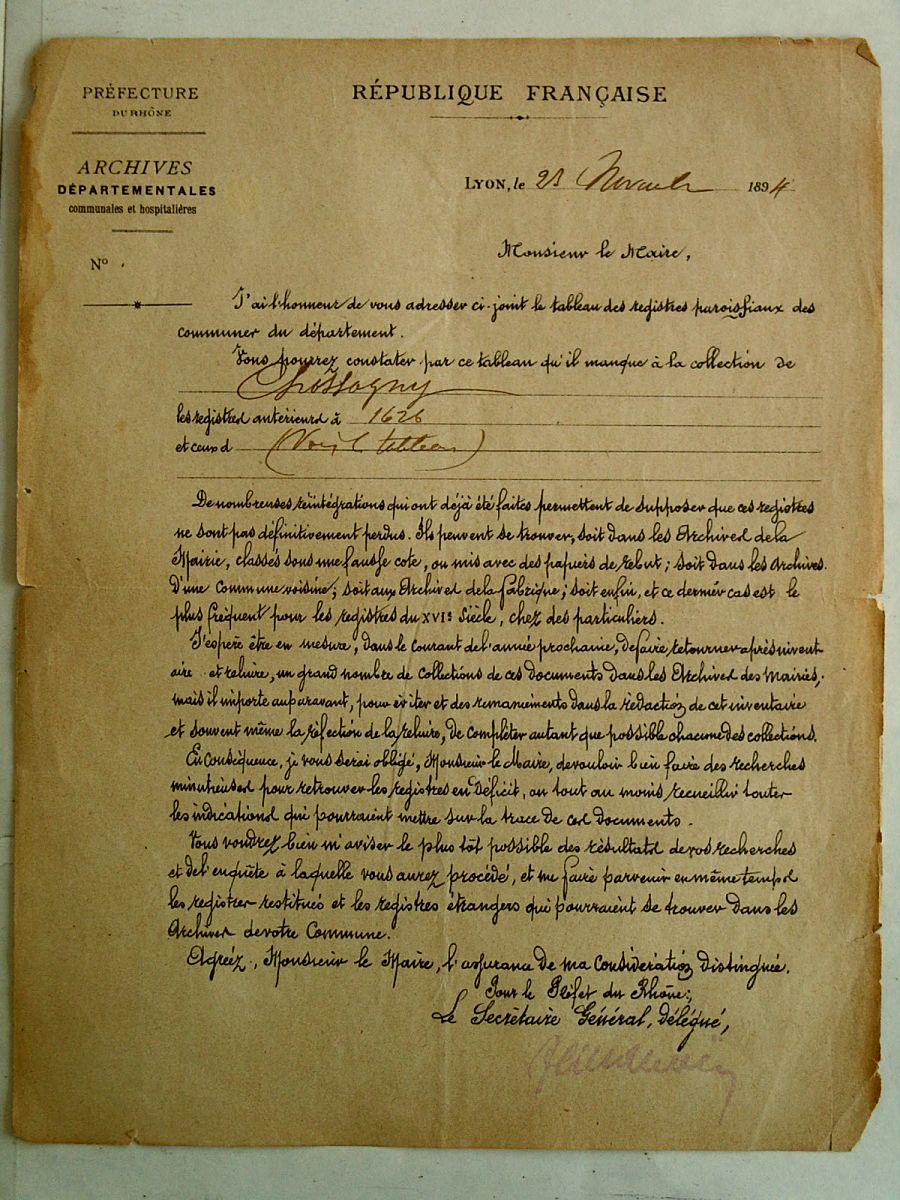 PRÉFECTURE
DU RHÔNE
RÉPUBLIQUE FRANÇAISE
ARCHIVES
DÉPARTEMENTALES
communales et hospitalières
Nº
LYON, le 23 Novembre 1894
Monsieur le Maire,
J'ai l'honneur de vous adresser ci-joint le tableau des registres paroissiaux des
communes du département.
Vous pourrez constater par ce tableau qu'il manque à la collection de
Chassagny
les registres antérieurs à 1626
et ceux d (Voir le tableau)
De nombreuses réintégrations qui ont déjà été faites permettent de supposer que ces registres
ne sont pas définitivement perdus. Ils peuvent se trouver, soit dans les Archives de la
Mairie, classés sous une fausse cote, ou mis avec des papiers de rebut; soit dans les Archives
d'une commune voisine; soit aux Archives de la fabrique; soit enfin, et ce dernier cas est le
plus fréquent pour les registres du XVIe siècle, chez des particuliers.
J'espère être en mesure, dans le courant de l'année prochaine, de faire retourner après invent
aire et reliure, un grand nombre de collections de ces documents dans les Archives des Mairies;
mais il importe auparavant, pour éviter et des remaniements dans la rédaction de cet inventaire
et souvent même la réfection de la reliure, de compléter autant que possible chacune des collections.
En conséquence, je vous serai obligé, Monsieur le Maire, de vouloir bien faire des recherches
minutieuses pour retrouver les registres en déficit, ou tout au moins recueillir toutes
les indications qui pourraient mettre sur la trace de ces documents.
Vous voudrez bien m'aviser le plus tôt possible des résultats de vos recherches
et de l'enquête à laquelle vous aurez procédé, et me faire parvenir en même temps
les registres restitués et les registres étrangers qui pourraient se trouver dans les
Archives de votre Commune.
Agréez, Monsieur le Maire, l'assurance de ma considération distinguée.
Pour le Préfet du Rhône:
Le Secrétaire Général, délégué,